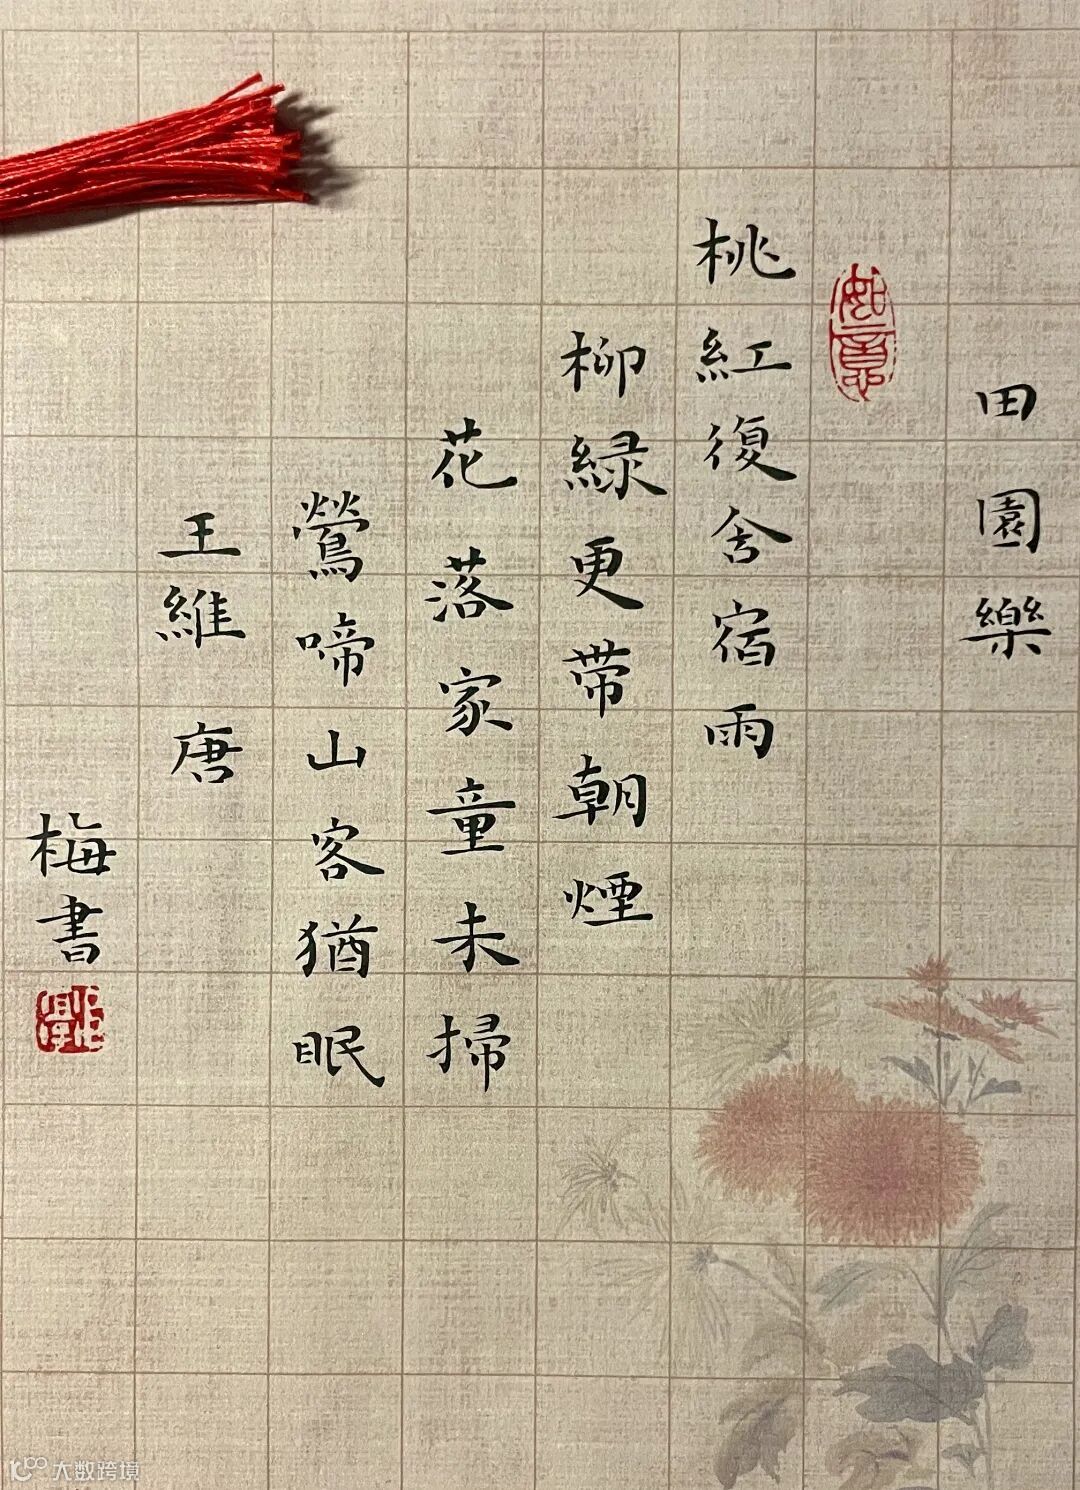 田園樂
如意
桃紅復含宿雨
柳緑更带朝煙
花落家童未掃
鶯啼山客猶眠
王維 唐
梅書
大数跨境